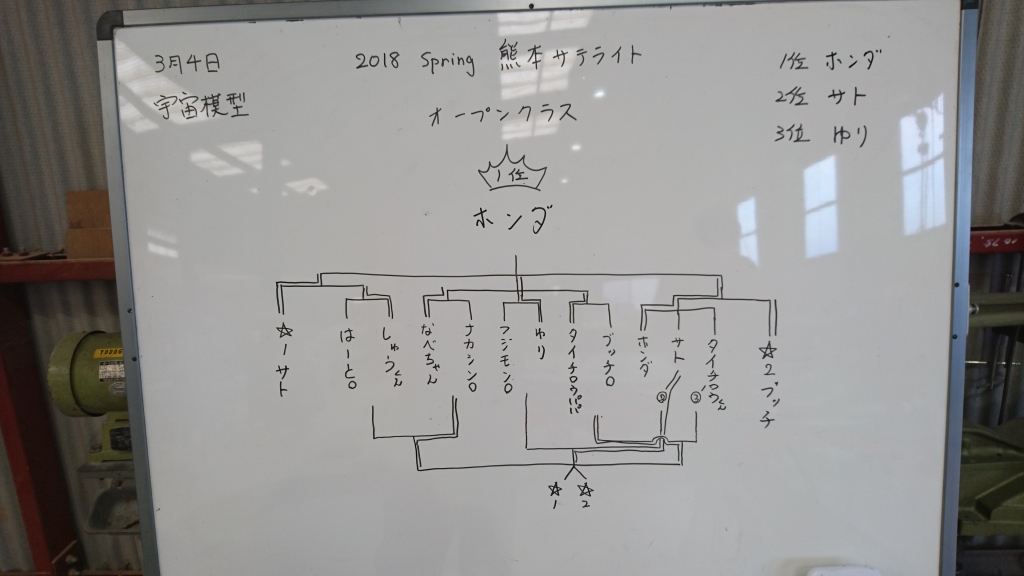 3月4日
宇宙模型
2018 Spring 熊本サテライト
オープンクラス
1位 ホンダ
2位 サト
3位 ゆり
1位
ホンダ
☆1サト
はーと○
しゅうくん
なべちゃん
ナカシン○
フジモン○
ゆり
タイチロウパパ
ブッチ○
ホンダ
サト
タイチロウくん
☆2ブッチ
②
☆1
☆2